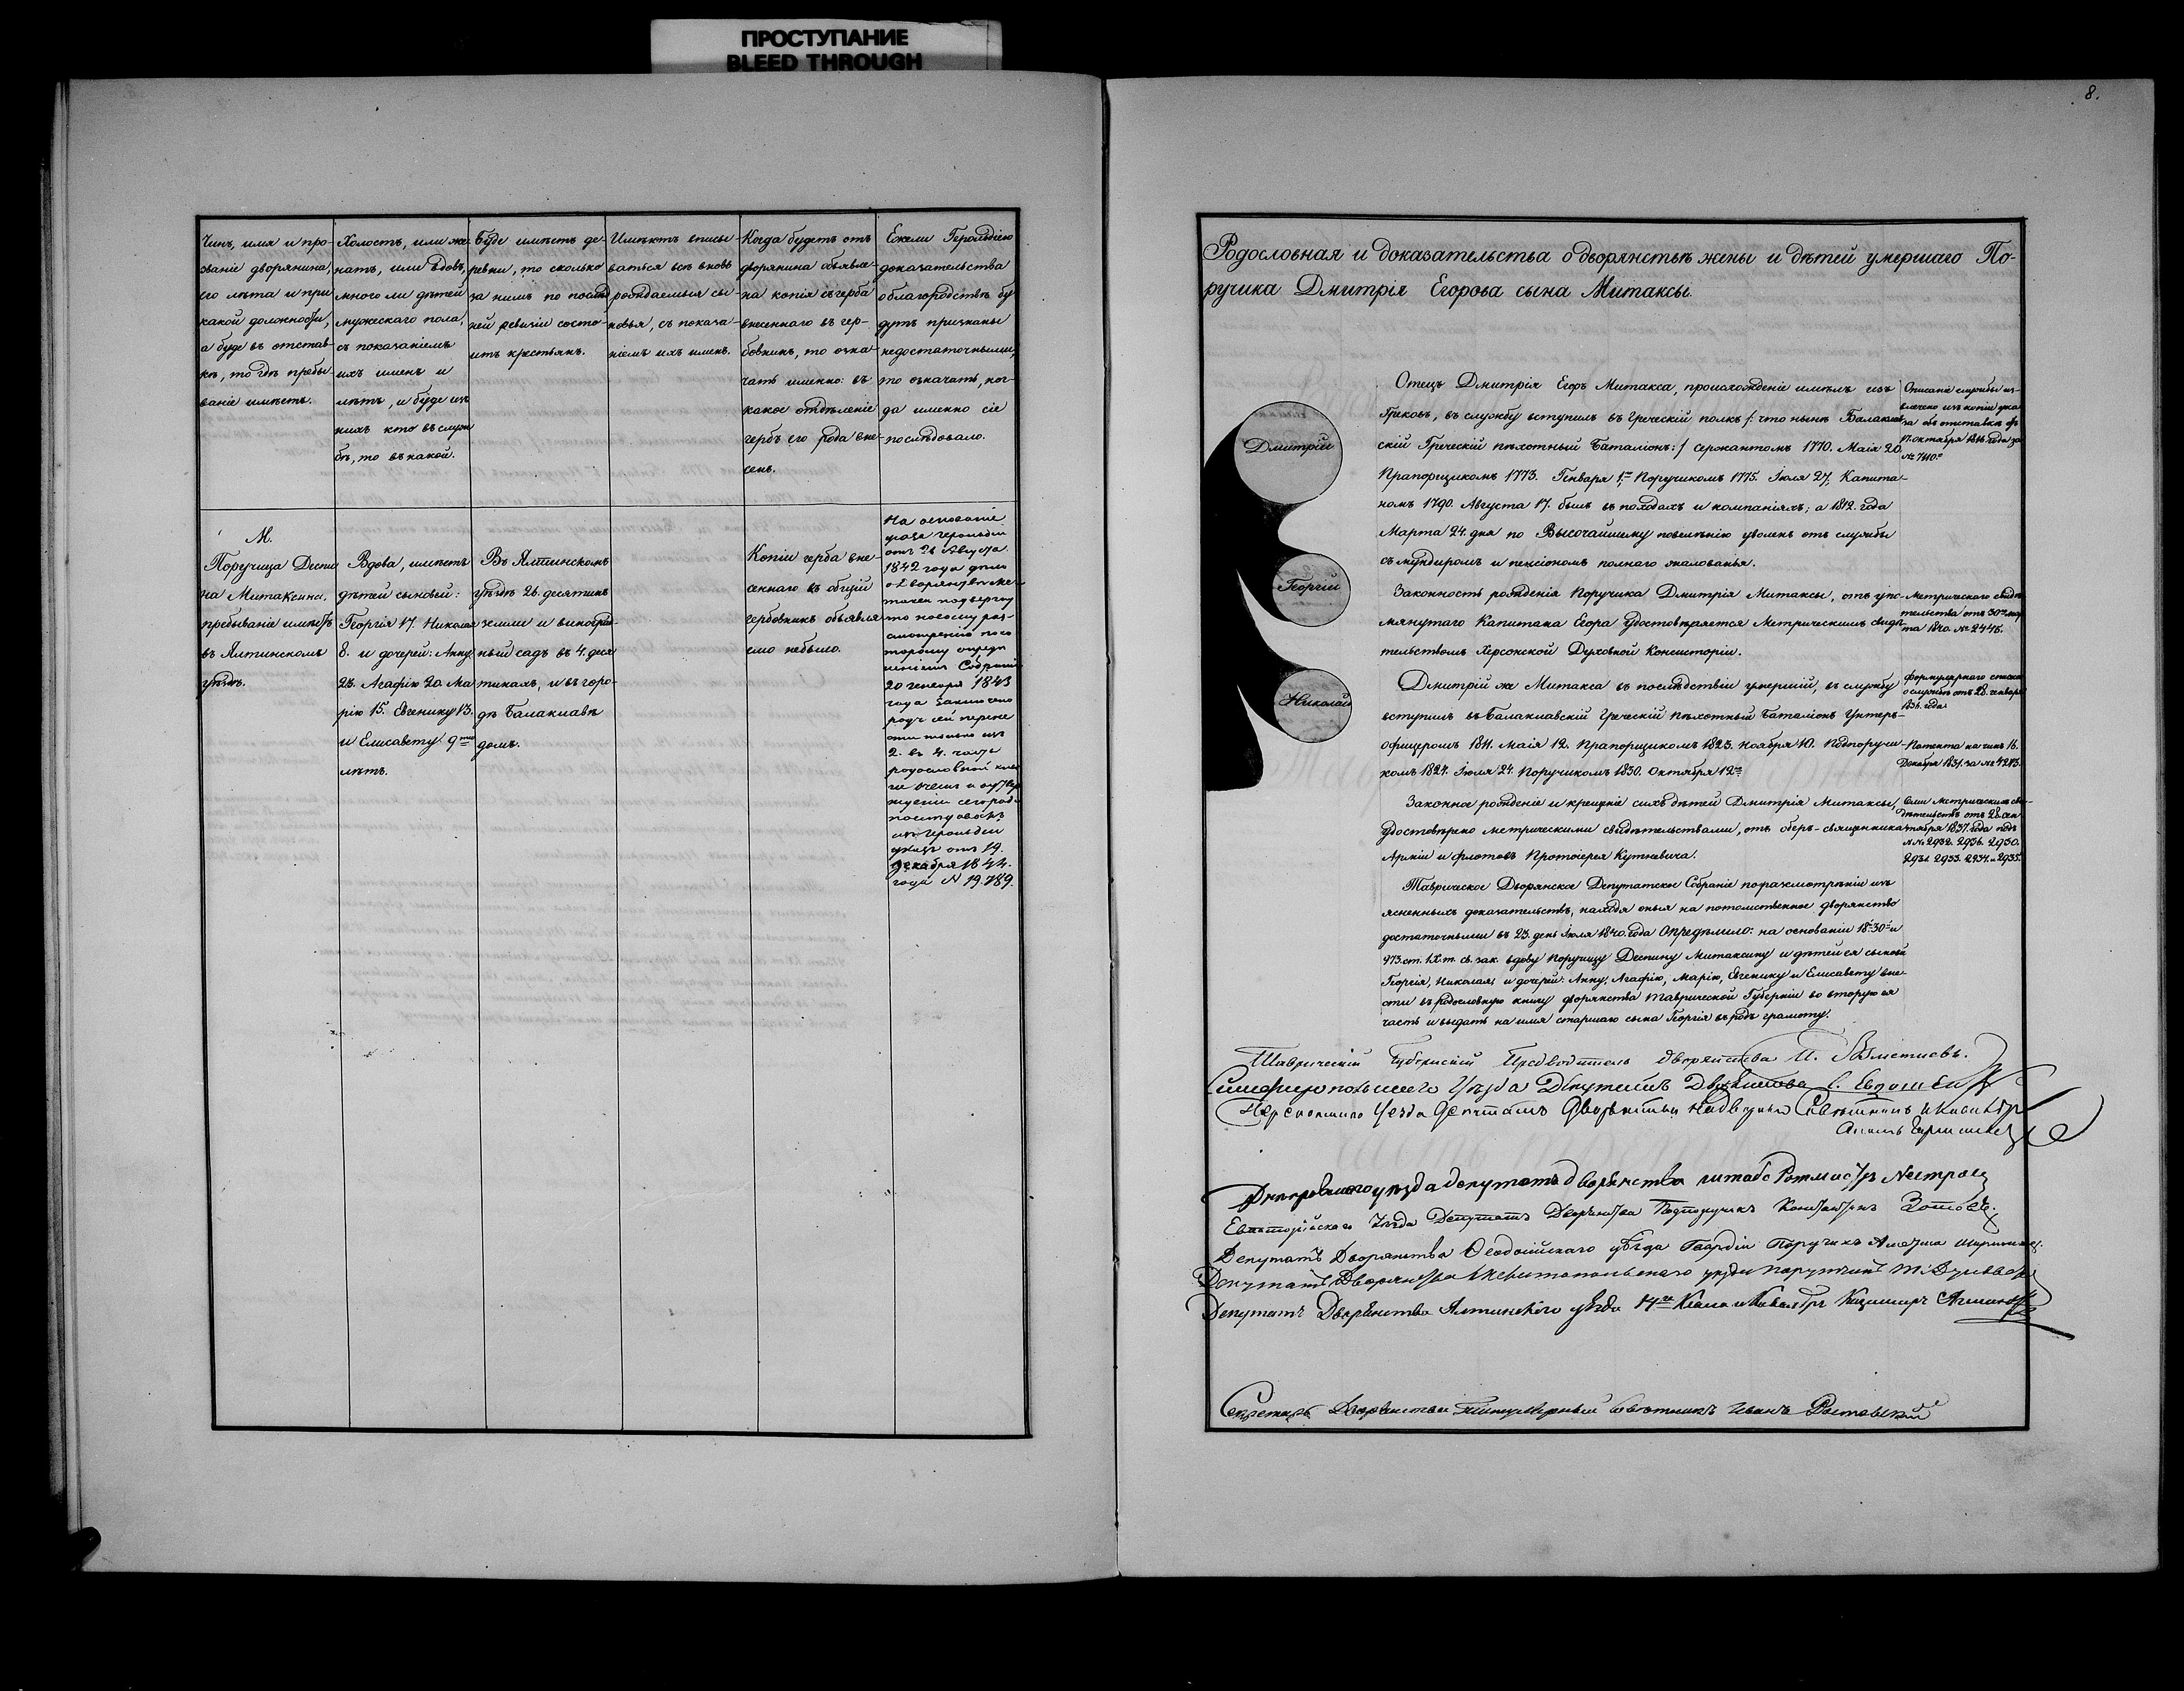 ПРОСТУПАНИЕ
BLEED THROUGH
Чинъ, имя и про-
званіе дворянина,
его лѣта и при
какой должности,
а буде въ отстав-
кѣ, то гдѣ пребы-
ваніе имѣетъ.
Холостъ, или же-
натъ, или вдовъ,
много ли дѣтей
мужескаго пола,
съ показаніемъ
ихъ именъ и
лѣтъ, и буде изъ
нихъ кто въ служ
бѣ, то въ какой.
Буде имѣетъ де-
ревни, то сколько
за нимъ по послѣд
ней ревизіи состо-
итъ крестьянъ.
Имѣютъ вписы-
ваться всѣ вновь
рождаемыя сы-
новья, съ показа-
ніемъ ихъ именъ.
Когда будетъ отъ
дворянина объявле-
на копія съ герба
внесеннаго въ гер-
бовникъ, то озна-
чать именно: въ
какое отдѣленіе
гербъ его рода вне-
сенъ.
Ежели Герольдіею
доказательства
о благородствѣ бу
дутъ признаны
недостаточными,
то означать, ког-
да именно сіе
послѣдовало.
М.
Поручица Деспи
на Митаксина.
пребываніе имѣетъ
въ Ялтинскомъ
уѣздѣ.
Вдова, имѣетъ
дѣтей сыновей:
Георгія 17. Николая
8. и дочерей: Анну
23. Агафію 20. Ма
рію 15. Евгенику 13.
и Елисавету 9ти
лѣтъ.
Въ Ялтинскомъ
уѣздѣ 26. десятинъ
земли и виноград-
ный садъ въ 4. деся
тинахъ, и въ горо-
дѣ Балаклавѣ
домъ.
Копіи герба вне-
сеннаго въ общій
гербовникъ объявля
емо небыло.
На основаніе
указа герольдіи
отъ 26 Августа
1842 года дѣло
о дворянствѣ Ме
таксы подвергну
то новому раз-
смотренію по ко
торому опредѣ
леніемъ Собранія
20 генваря 1843
года заключено
родъ сей перене
сти только изъ
2. въ 4. часть
родословной кни
ги о чемъ и
послѣдовалъ
изъ герольдіи
указъ отъ 19.
Декабря 1844.
года N 19.789.
8.
Родословная и доказательства о дворянствѣ жены и дѣтей умершаго По-
ручика Дмитрія Егорова сына Митаксы.
Дмитрій
Георгій
Николай
Отецъ Дмитрія Егоръ Митакса, происхожденіе имѣлъ изъ
Грековъ, въ службу вступилъ въ Греческій полкъ /: что нынѣ Балаклав-
скій Греческій пѣхотный Баталіонъ :/ сержантомъ 1770. Маія 20.
Прапорщикомъ 1773. Генваря 1го Поручикомъ 1775. Іюля 27, Капита-
номъ 1790. Августа 17. былъ въ походахъ и компаніяхъ; а 1812. года
Марта 24. дня по Высочайшему повелѣнію уволенъ отъ службы
съ мундиромъ и пенсіономъ полнаго жалованья.
Описаніе службы из-
влечено изъ копіи ука
за объ отставкѣ отъ
17. октября 1816. года за
№ 7110.
Законность рожденія Поручика Дмитрія Митаксы, отъ упо-
мянутаго Капитана Егора удостовѣряется Метрическимъ свидѣ
тельствомъ Херсонской Духовной Консисторіи.
Метрическаго свидѣ
тельства отъ 30го мар
та 1840. № 2446.
Дмитрій же Митакса въ послѣдствіи умершій, въ службу
вступилъ въ Балаклавскій Греческій пѣхотный Баталіонъ Унтеръ-
офицеромъ 1811. Маія 12. Прапорщикомъ 1823. Ноября 10. Подпоручи-
комъ 1827. Іюля 24. Поручикомъ 1830. Октября 12го
Формулярнаго списка
о службѣ отъ 28. генваря
1836. года
Патента на чинъ 16.
Декабря 1831. за № 4283.
Законное рожденіе и крещеніе сихъ дѣтей Дмитрія Митаксы,
удостовѣрено метрическими свидѣтельствами, отъ оберъ-священника
Арміи и флотовъ Протоіерея Кутневича.
Семи Метрическихъ сви-
дѣтельствъ отъ 28. сен
тября 1837. года подъ
№№ 2932. 2936. 2930.
2931. 2933. 2934. и 2935.
Таврическое Дворянское Депутатское Собраніе по разсмотрѣніи изъ
ясненныхъ доказательствъ, находя оныя на потомственное дворянство
достаточными въ 23. день Іюля 1840. года Опредѣлило: на основаніи 18. 30. и
973. ст. IX. т. св. зак. вдову Поручицу Деспину Митаксину и дѣтей ея сыновей
Георгія, Николая, и дочерей: Анну, Агафію, Марію, Евгенику и Елисавету вне-
сти въ Родословную книгу дворянства Таврической Губерніи во вторую ея
часть и выдать на имя старшаго сына Георгія въ родъ грамоту.
Таврическій Губернскій Предводитель дворянства
Симферопольскаго Уѣзда Депутатъ Дворянства
Перекопскаго Уезда Депутатъ Дворянства Надворный Совѣтникъ и Кавалеръ
Днепровскаго уѣзда депутатъ дворянства штабс Ротмистръ
Евпаторійскаго Уѣзда Депутатъ Дворянства Подпоручикъ Константинъ Зотовъ.
Депутатъ Дворянства Ѳеодосійскаго уѣзда Гвардіи Поручикъ
Депутатъ Дворянства Мелитопольскаго уѣзда поручикъ
Депутатъ Дворянства Ялтинскаго уѣзда 14го Класа и Кавалеръ Казимиръ
Секретарь Дворянства Титулярный совѣтникъ Иванъ